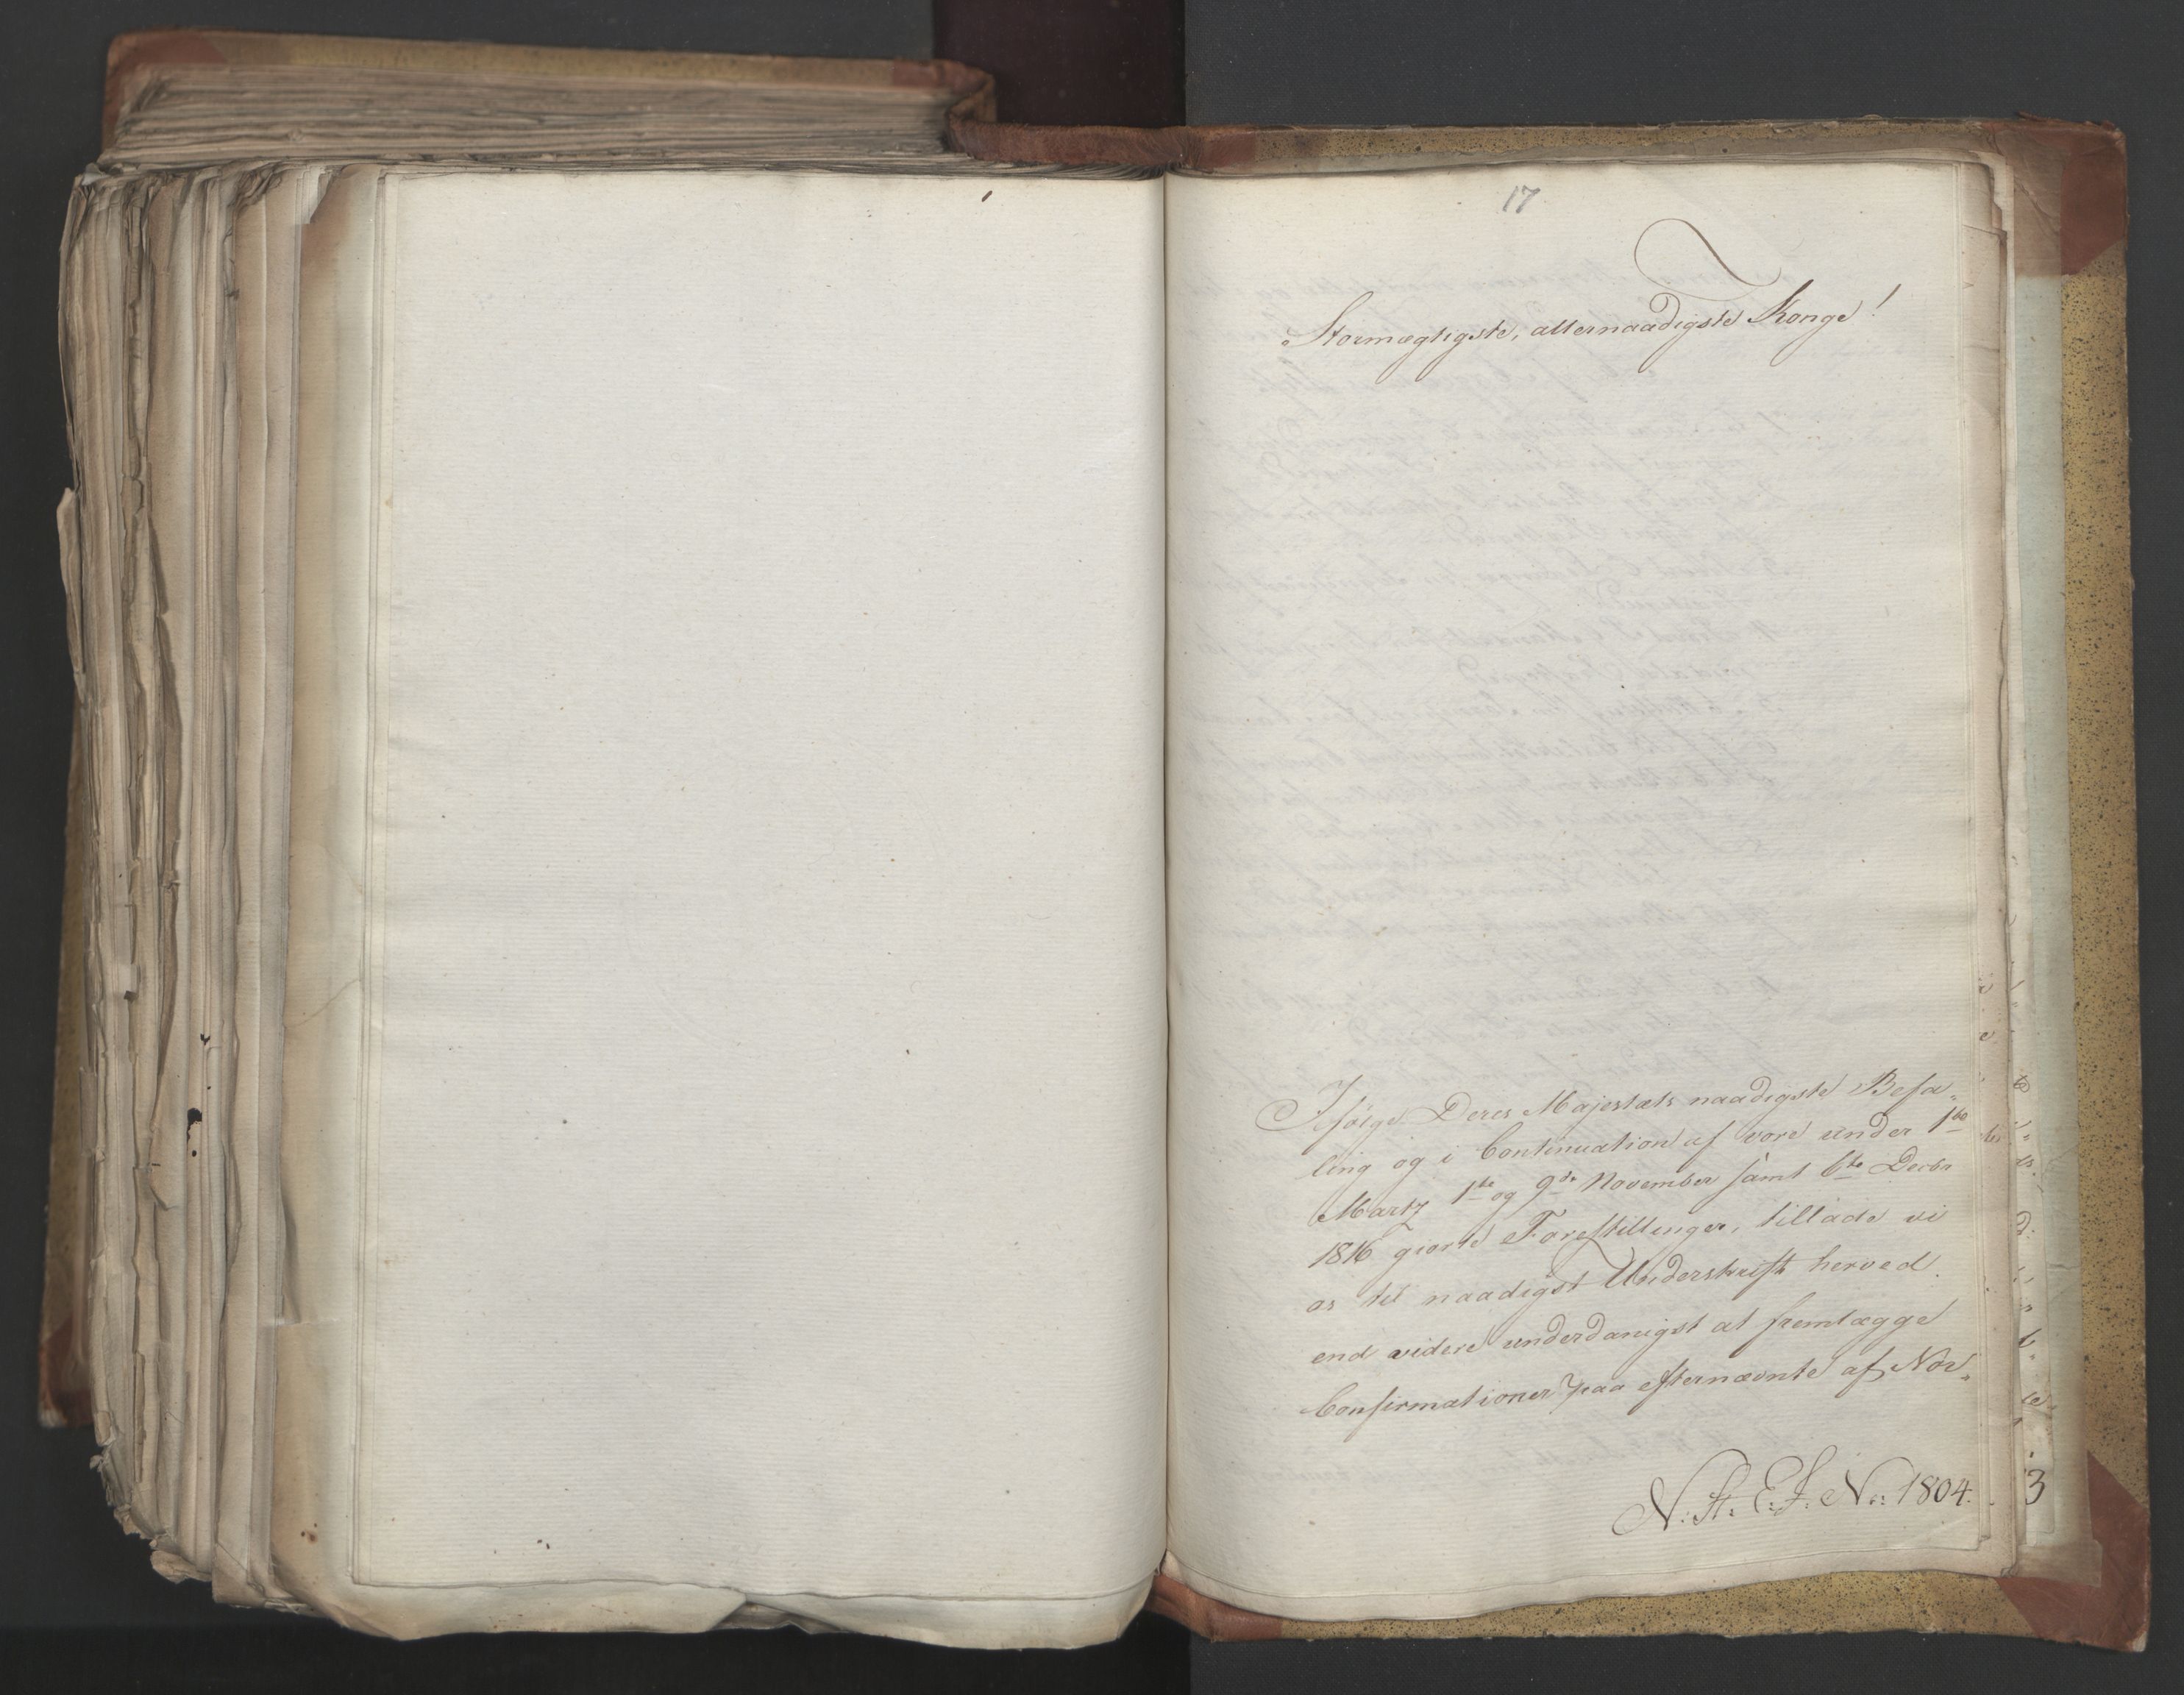 17
Stormægtigste, allernaadigste Konge!
Ifølge Deres Majestæts naadigste Befa„
ling og i Continuation af vore under 1ste
Martz 1ste og 9de November samt 6te Decbr
1816 giorte Forestillinger, tillade vi
os til naadigst Underskrift herved
end videre underdanigst at fremlægge
Confirmationer paa efternævnte af Nor„
N. St. E. J. No: 1804.
3